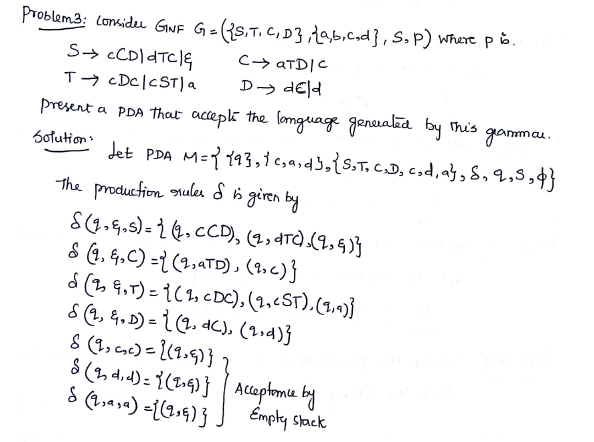 Problem3: Consider GNF G = ({S,T,C,D}, {a,b,c,d}, S, P) where P is.
S → cCD|dTC|ε C → aTD|c
T → cDC|cST|a D → dC|d
present a PDA that accepts the language generated by this grammar.
Solution:
Let PDA M = {{q}, {c,a,d}, {S,T,C,D,c,d,a}, δ, q, S, ϕ}
The production rules δ is given by
δ(q,ε,S) = {(q,cCD), (q,dTC), (q,ε)}
δ(q,ε,C) = {(q,aTD), (q,c)}
δ(q,ε,T) = {(q,cDC), (q,cST), (q,a)}
δ(q,ε,D) = {(q,dC), (q,d)}
δ(q,c,c) = {(q,ε)}
δ(q,d,d) = {(q,ε)} } Acceptance by
δ(q,a,a) = {(q,ε)} Empty stack